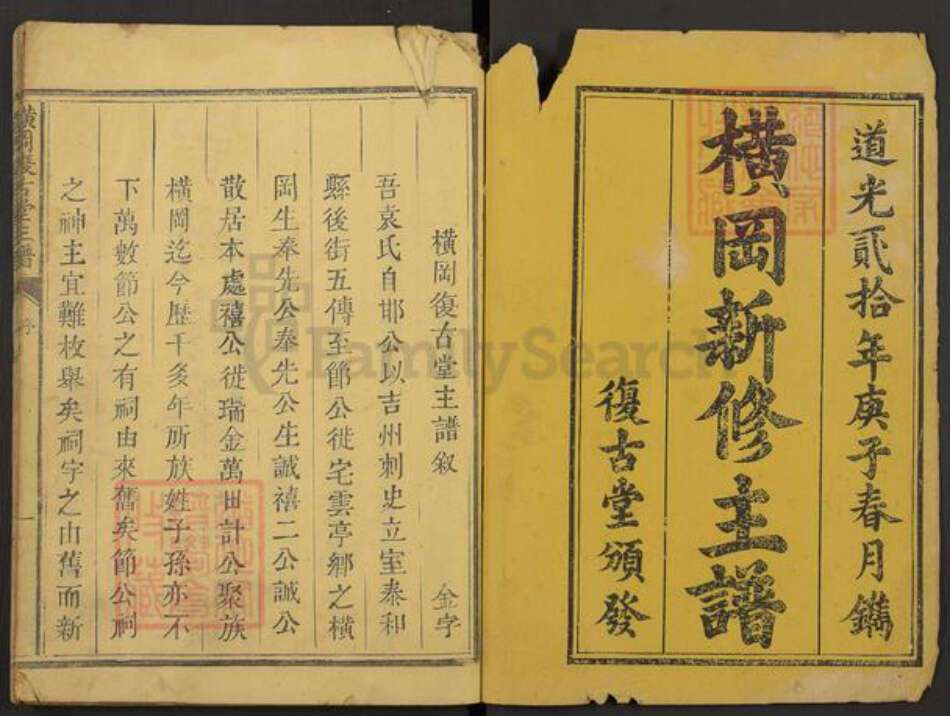 道光貳拾年庚子春月鐫
橫岡新修主譜
復古堂頒發
橫岡復古堂主譜叙 金字
吾袁氏自邯公以吉州刺史立室泰和
縣後街五傳至節公徙宅雲亭鄉之橫
岡生奉先公奉先公生誠禧二公誠公
散居本處禧公從瑞金萬田計公聚族
橫岡迄今歷千多年所族姓子孫亦不
下萬數節公之有祠由來舊矣節公祠
之神主宜難枚舉矣祠宇之由舊而新
橫岡復古堂主譜 序 一
FamilySearch